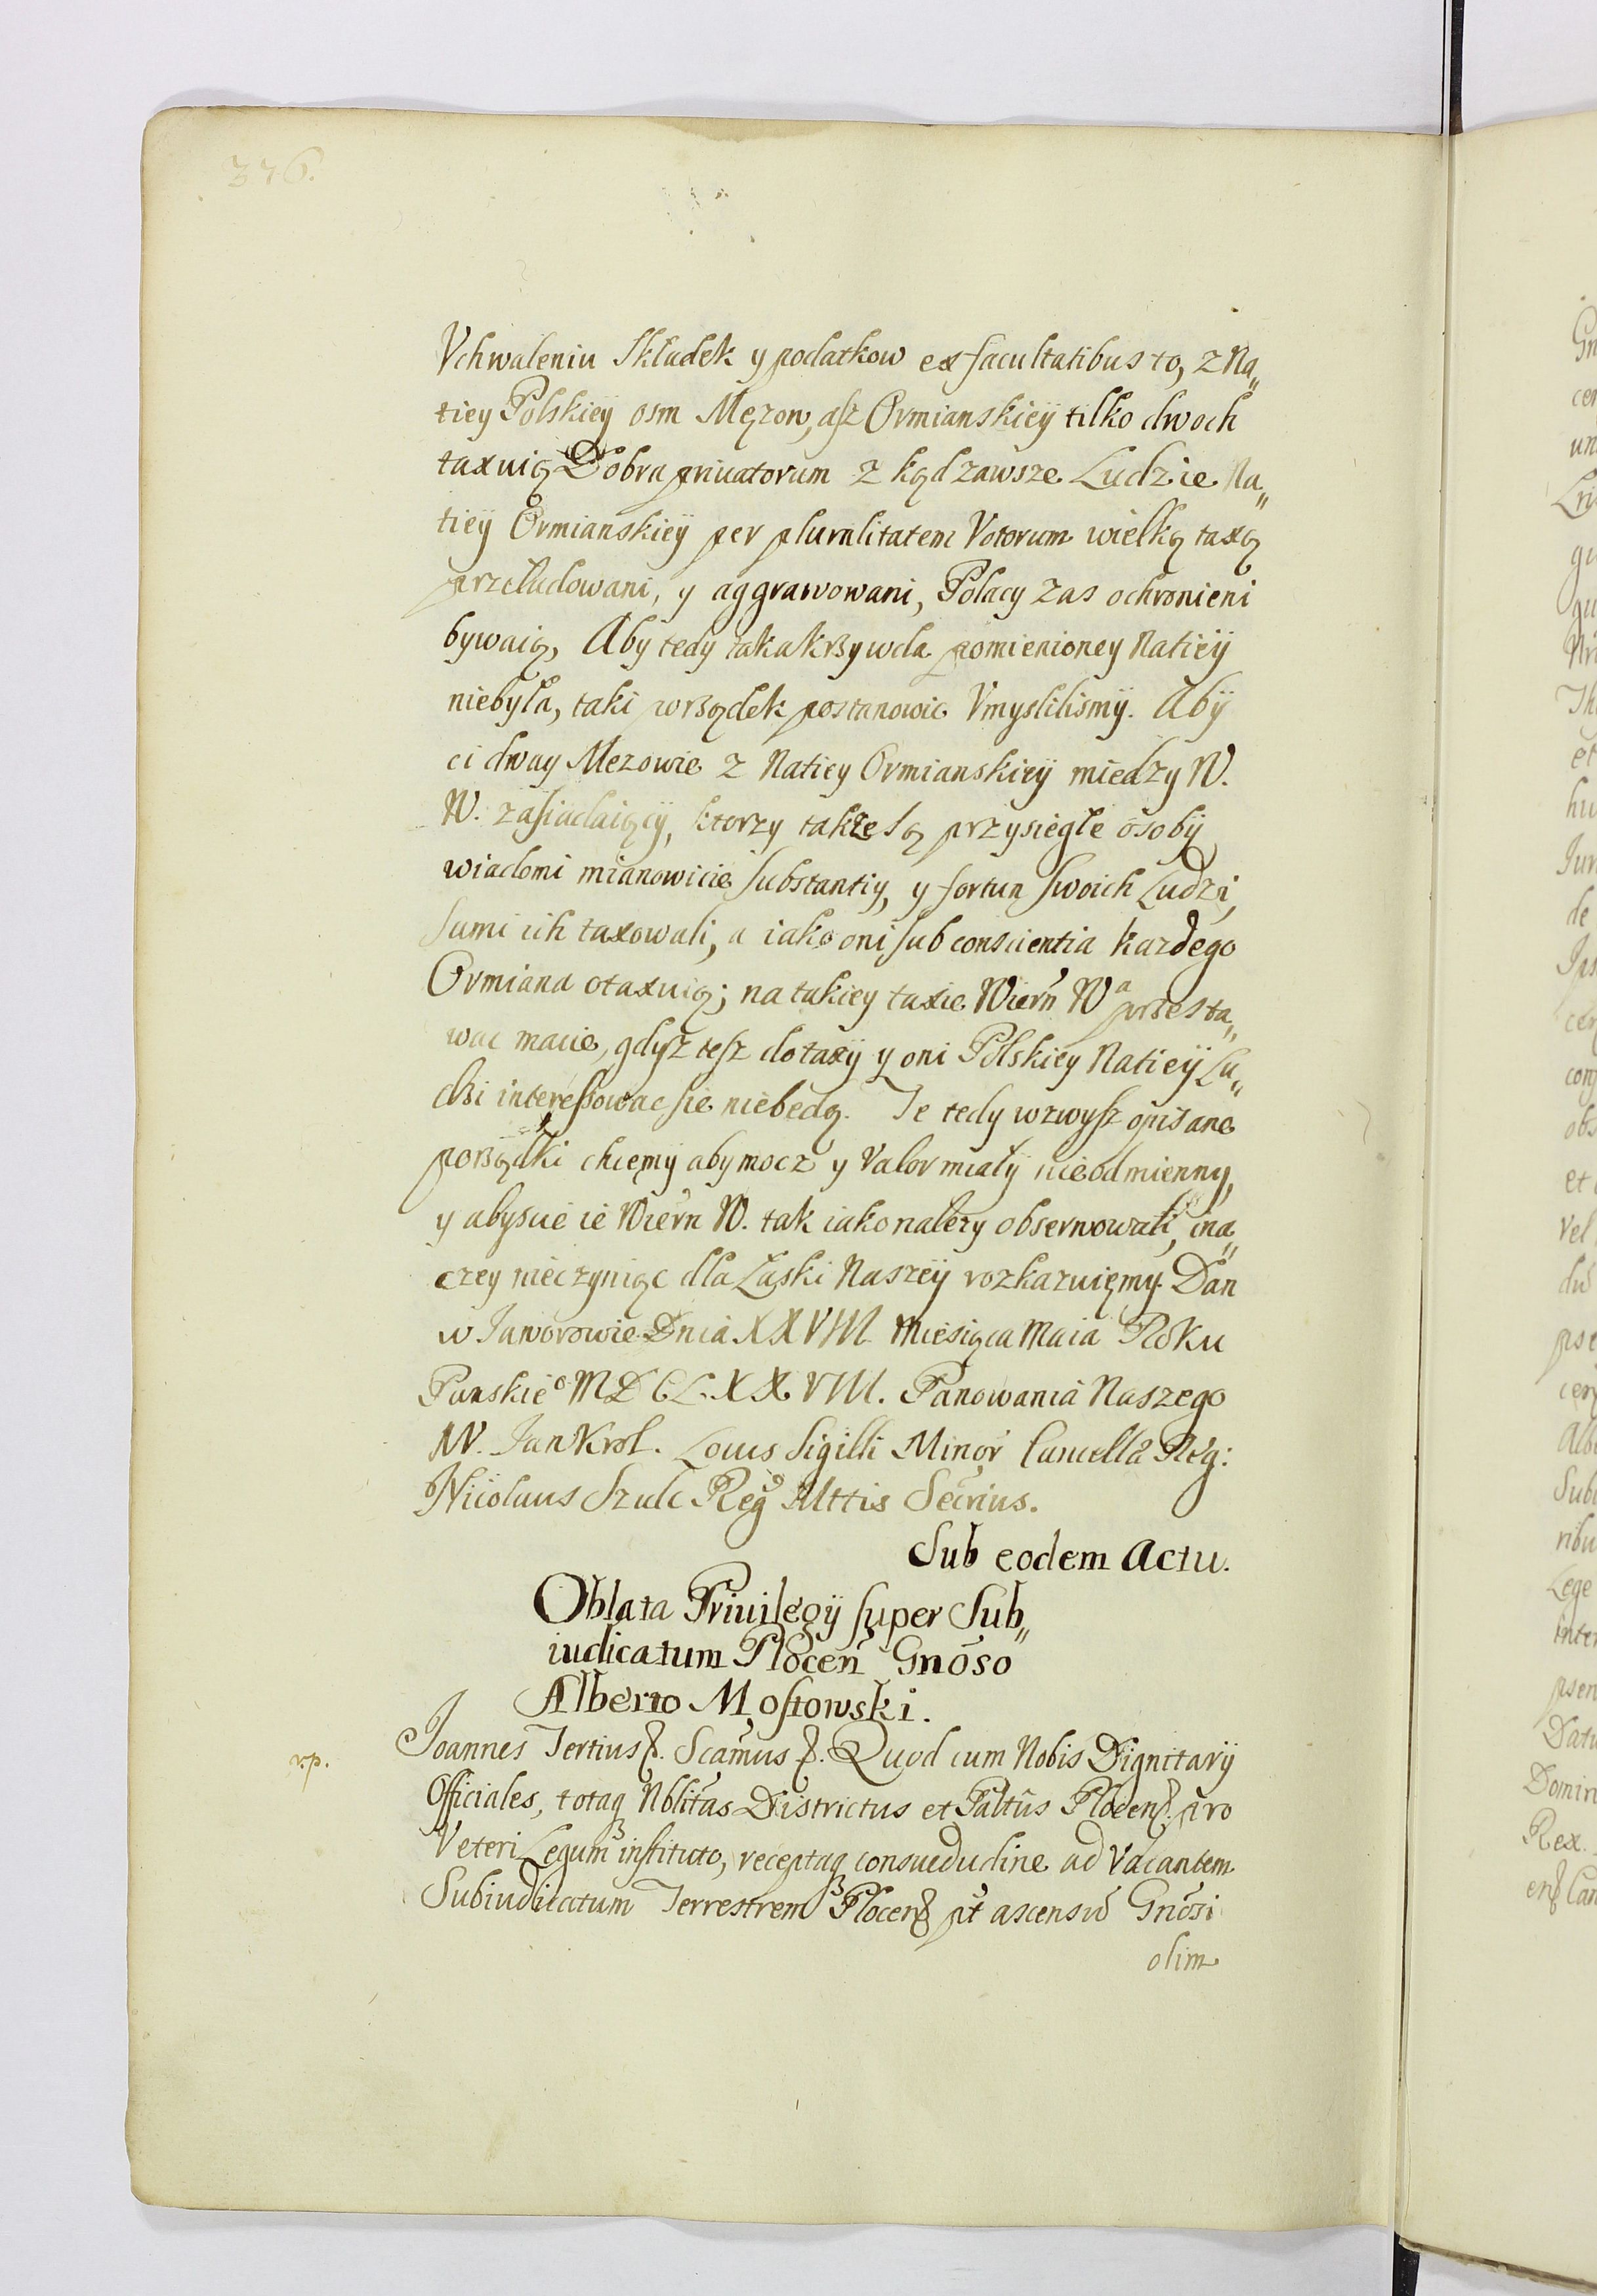 336.
Vchwaleniu składek y podatkow ex facultatibus to, z Na„
tiey Polskieÿ osm Męzow, asz Ormianskieÿ tilko dwoch
taxuią Dobra priuatorum z kąd zawsze Ludzie Na„
tieÿ Ormianskieÿ per pluralitatem Votorum wielką taxą
przeładowani, y aggrawowani, Polacy zas ochronieni
bywaią, Aby tedy taka krzywda pomienioney Natieÿ
niebyła, taki porządek postanowic Vmyslilismÿ. Abÿ
ci dway Mezowie z Natiey Ormianskieÿ miedzy W.
W. zasiadaiącÿ, ktorzy także są przysięgłe osobÿ
wiadomi mianowicie substantiy, y fortun swoich Ludzi,
sami ich taxowali, a iako oni sub conscientia kazdego
Ormiana otaxuią; na takiey taxie Wiern̄ Wᵃ przesta„
wac macie, gdysz tesz do taxÿ y oni Polskiey Natieÿ Lu„
dzi interessowac sie niebedą. Te tedy wzwysz opisane
porządki chcemy aby mocz y Valor miałÿ nieodmienny,
y abyscie ie Wiern̄ W. tak iako nalezy obserwowali, ina„
czey nieczyniąc dla Łaski Naszeÿ rozkazuięmy. Dan
w Jaworowie Dnia XXVIII Miesiąca Maia Roku
Panskieᵒ MDCLXXVIII. Panowania Naszego
IV. Jan Krol. Locus Sigilli Minor̄ Cancellæ Reg:
Nicolaus Szulc Reg̃ Mttis Secrius.
Sub eodem Actu.
Oblata Priuilegÿ super Sub„
iudicatum Plocen̄ Gnōso
Alberto Mostowski.
r.p.
Joannes Tertius &. Scāmus &. Quod cum Nobis Dignitarÿ
Officiales, totaq₃ Nblitas Districtus et Paltūs Plocen̄. pro
Veteri Legum instituto, receptaq₃ consuedudine ad Vacantem
Subiudicatum Terrestrem Plocen̄ p̄t ascensū Gnōsi
olim